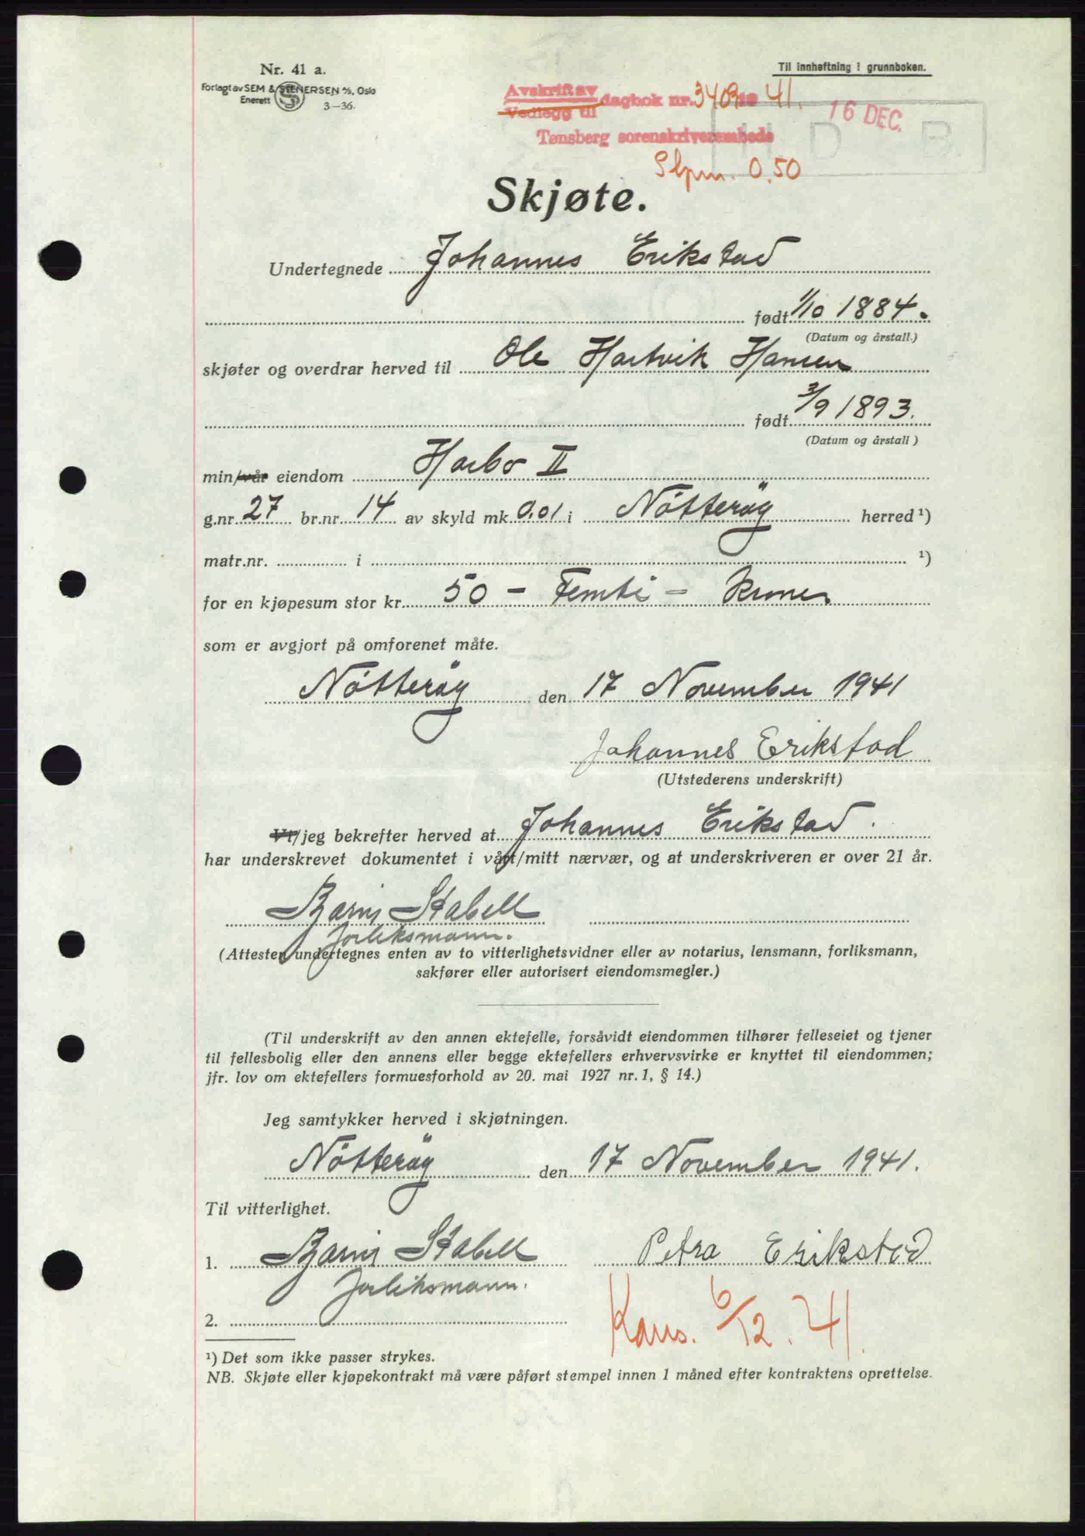 Nr. 41 a.
Forlagt av SEM & STENERSEN A/S, Oslo
Enerett 3–36.
Til innheftning i grunnboken.
Avskrift av
Vedlegg til dagbok nr. 3403 19 41.
Tønsberg sorenskriverembede
16 DEC.
D B.
Stpm. 0.50
Skjøte.
Undertegnede Johannes Erikstad
født 1/10 1884.
(Datum og årstall.)
skjøter og overdrar herved til Ole Hartvik Hansen
født 3/9 1893.
(Datum og årstall)
min/vår eiendom Harbo II
g.nr. 27 br.nr. 14 av skyld mk. 0.01 i Nötteröy herred ¹)
matr.nr. i ¹)
for en kjøpesum stor kr. 50 – Femti – Kroner
som er avgjort på omforenet måte.
Nötteröy den 17 November 1941
Johannes Erikstad
(Utstederens underskrift)
Vi/jeg bekrefter herved at Johannes Erikstad.
har underskrevet dokumentet i vårt/mitt nærvær, og at underskriveren er over 21 år.
Barni Stabell
forliksmann.
(Attesten undertegnes enten av to vitterlighetsvidner eller av notarius, lensmann, forliksmann,
sakfører eller autorisert eiendomsmegler.)
(Til underskrift av den annen ektefelle, forsåvidt eiendommen tilhører felleseiet og tjener
til fellesbolig eller den annens eller begge ektefellers erhvervsvirke er knyttet til eiendommen;
jfr. lov om ektefellers formuesforhold av 20. mai 1927 nr. 1, § 14.)
Jeg samtykker herved i skjøtningen.
Nötteröy den 17 November 1941.
Til vitterlighet.
1. Barni Stabell Petra Erikstad
forliksmann.
2.
Kons. 6/12. 41.
¹) Det som ikke passer strykes.
NB. Skjøte eller kjøpekontrakt må være påført stempel innen 1 måned efter kontraktens oprettelse.